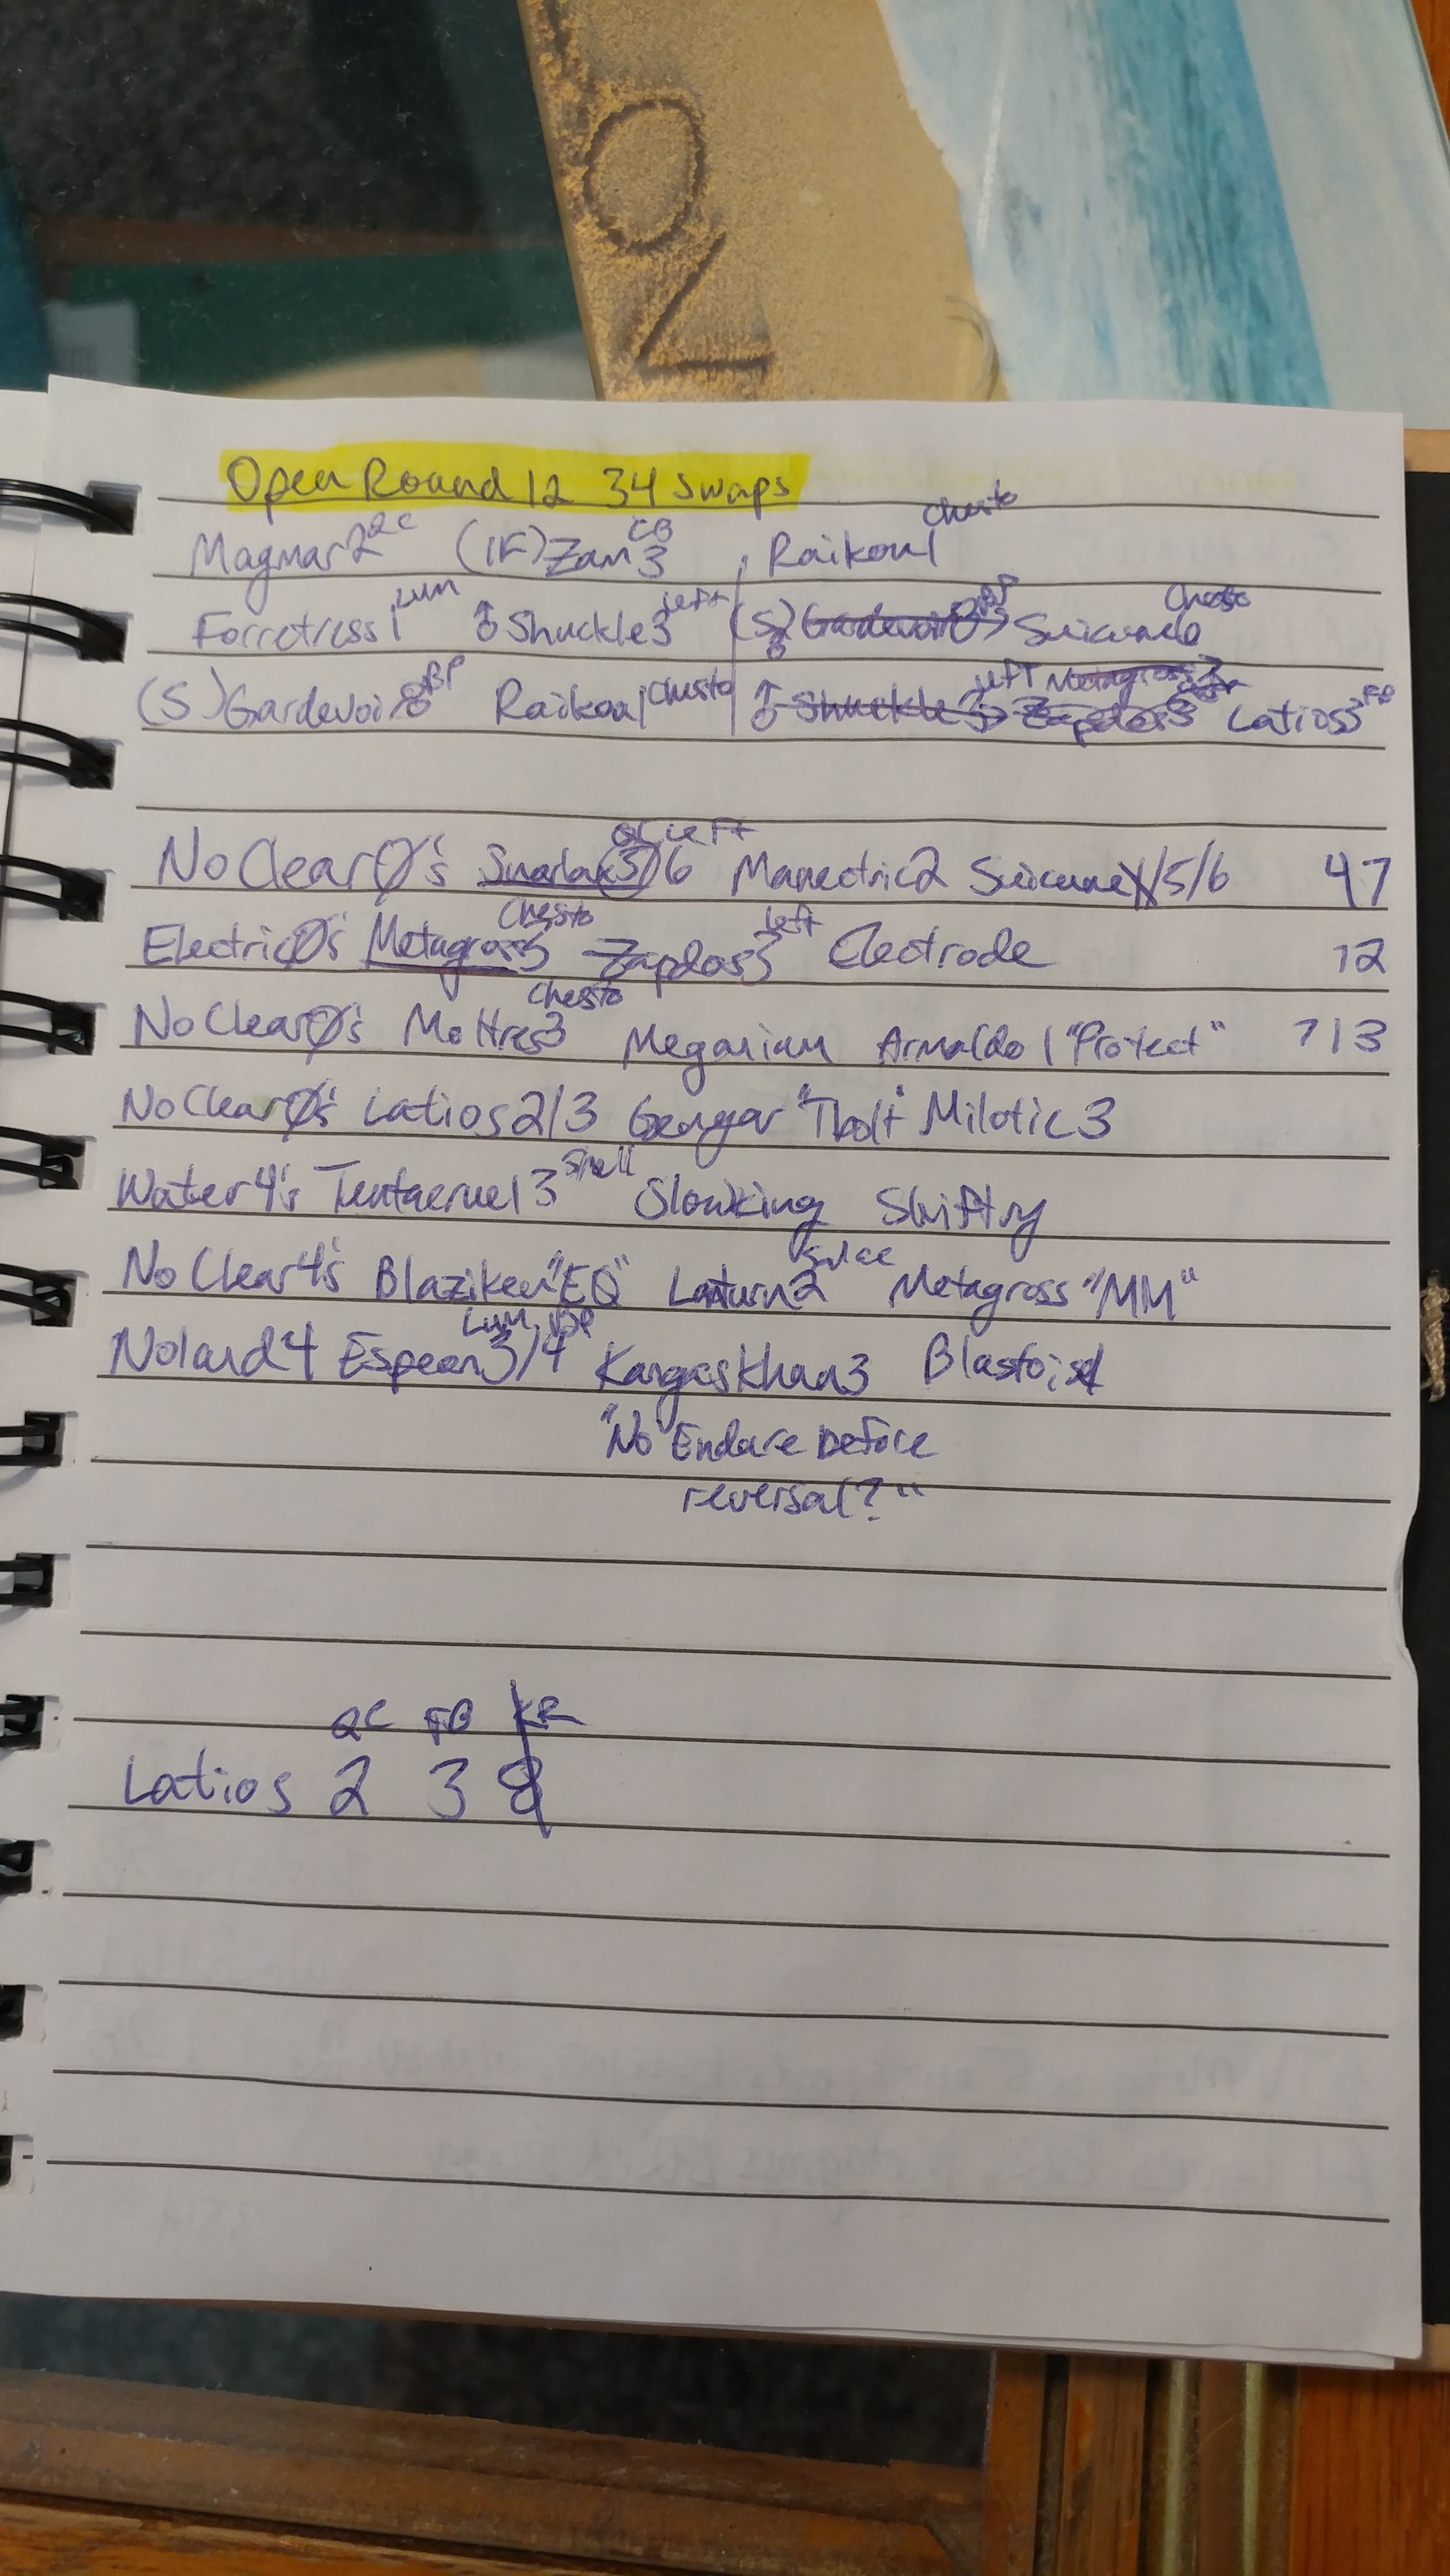 Open Round 12 34 swaps
Magmar2 QC (IF) Zan3 CB , Raikou1 Chesto
Forretress1 Lum ♂ Shuckle3 Left (S) Gardevoir8 BP → Suicune6 Chesto
(S) Gardevoir8 BP Raikou1 Chesto ♂ Shuckle3 Left → Zapdos3 Metagross Latios3 FB
No Clear Ø's Snorlax(5)/6 QC Left Manectric2 Suicune /5/6 47
Electric Ø's Metagross3 Chesto Zapdos3 Left Electrode 12
No Clear Ø's Moltres3 Chesto Meganium Armaldo 1 "Protect" 713
No Clear Ø's Latios2/3 Gengar "Tbolt" Milotic3
Water 4's Tentacruel 3 Shell Slowking Shiftry
No Clear 4's Blaziken "EQ" Lanturn2 Metagross "MM"
Noland 4 Espeon3/4 Lum BP Kangaskhan3 Blastoise4
"No Endure before
reversal?"
QC FB KR
Latios 2 3 8